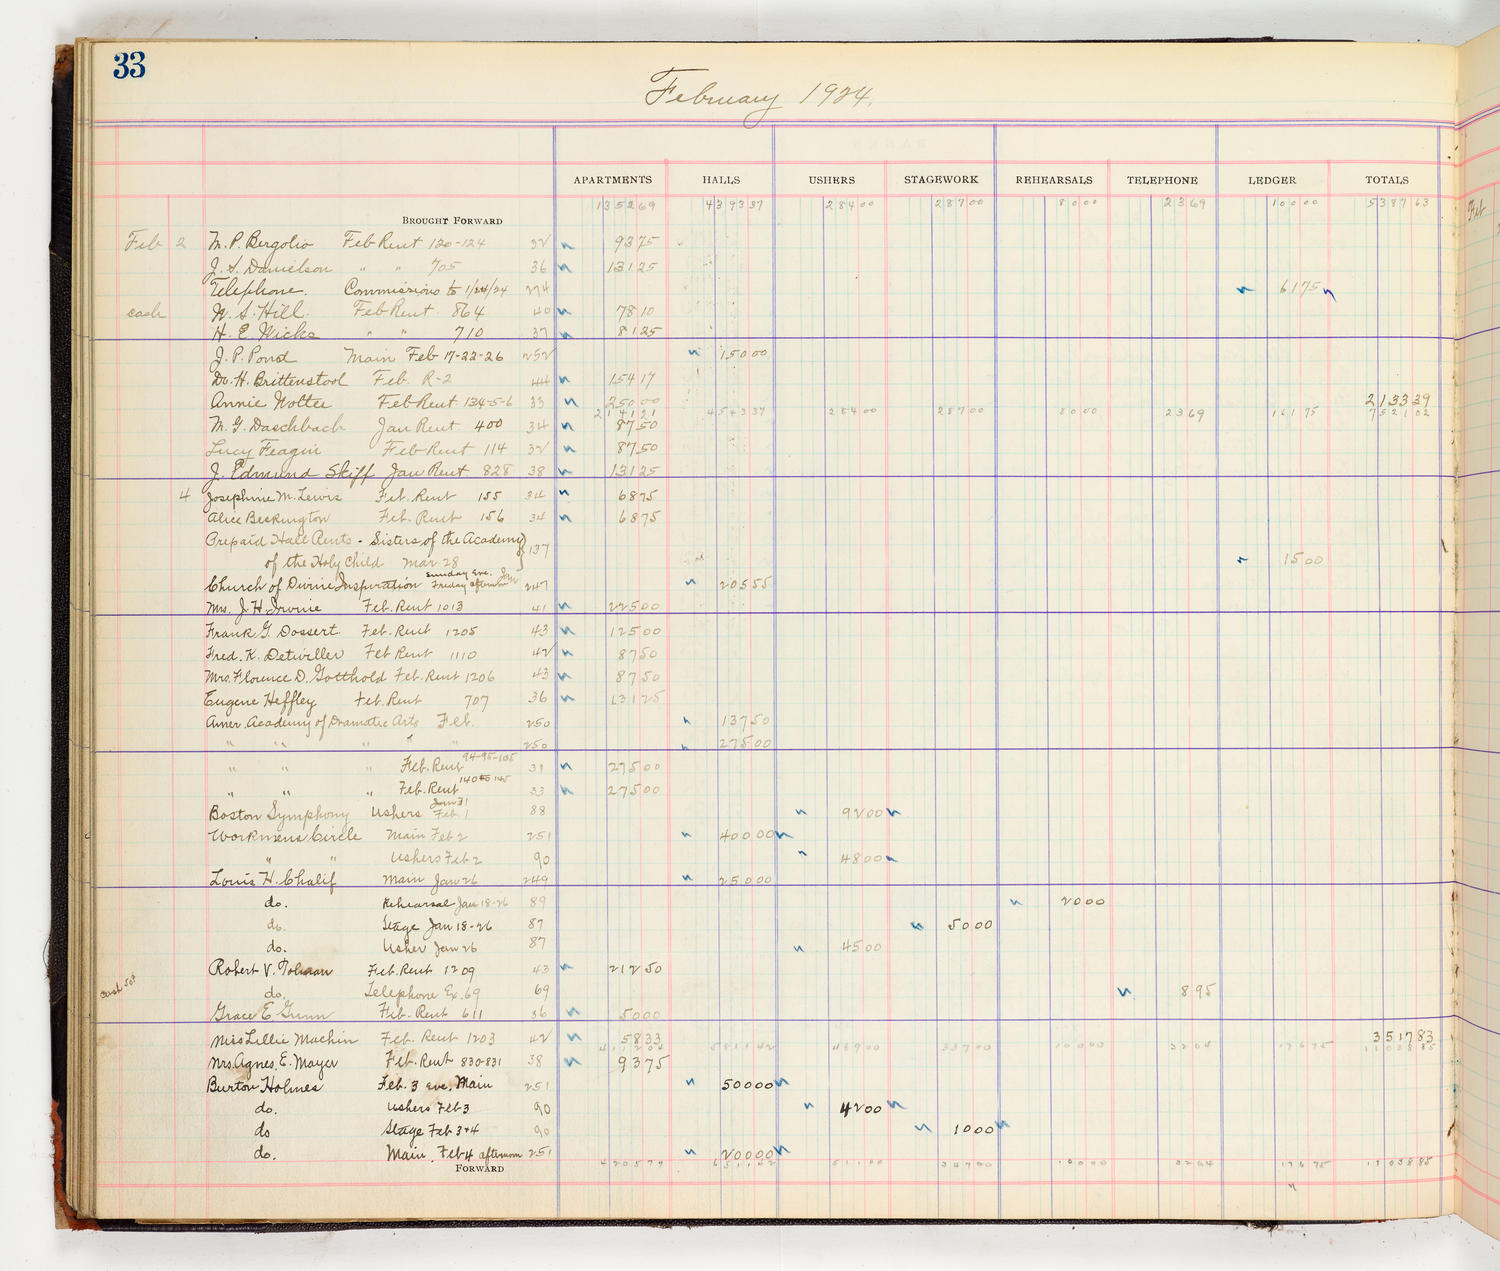 33
February 1924.
APARTMENTS HALLS USHERS STAGEWORK REHEARSALS TELEPHONE LEDGER TOTALS
BROUGHT FORWARD 135269 439337 28400 28700 8000 2369 10000 538763
Feb 2 M. P. Bergolio Feb Rent 120-124 32 9375
J. S. Danielson " " 705 36 13125
Telephone. Commissions to 1/24/24 274 6175
cash W. S. Hill. Feb Rent 864 40 7810
H. E. Wicks " " 710 37 8125
J. P. Pond Main Feb 17-22-26 252 15000
Dr. H. Brittenstool Feb. R-2 44 15417
Annie Wolter Feb Rent 134-5-6 33 25000 213339
214121 454337 28400 28700 8000 2369 16175 752102
M. G. Daschbach Jan Rent 400 34 8750
Lucy Feagin Feb Rent 114 32 8750
J. Edmund Skiff Jan Rent 828 38 13125
4 Josephine M. Lewis Feb. Rent 155 34 6875
Alice Beckington Feb. Rent 156 34 6875
Prepaid Hall Rents - Sisters of the Academy
of the Holy Child Mar 28 137 1500
Church of Divine Inspiration Sunday Eve. Friday afternoon Jan 247 20555
Mrs. J. H. Irvine Feb. Rent 1013 41 22500
Frank G. Dossert. Feb. Rent 1205 43 12500
Fred. K. Detwiller Feb Rent 1110 42 8750
Mrs. Florence D. Gotthold Feb. Rent 1206 43 8750
Eugene Heffley Feb. Rent 707 36 13125
Amer. Academy of Dramatic Arts Feb. 250 13750
" " " " 250 27500
" " Feb. Rent 94-95-105 31 27500
" " " Feb. Rent 140 to 145 33 27500
Boston Symphony Ushers Jan 31 Feb. 1 88 9200
Workmens Circle Main Feb 2 251 40000
" " Ushers Feb 2 90 4800
Louis H. Chalif Main Jan 26 249 25000
do. Rehearsal Jan 18-26 89 2000
do. Stage Jan 18-26 87 5000
do. Usher Jan 26 87 4500
Robert V. Feb. Rent 1209 43 21250
cash do. Telephone Ex. 69 69 895
Grace E. Gunn Feb. Rent 611 36 5000
Miss Lillie Machin Feb. Rent 1203 42 5833 351783
411204 581142 46900 33700 10000 3264 17675 1103885
Mrs. Agnes. E. Mayer Feb. Rent 830-831 38 9375
Burton Holmes Feb. 3 Eve. Main 251 50000
do. Ushers Feb 3 90 4200
do Stage Feb 3+4 90 1000
do. Main. Feb 4 afternoon 251 20000
FORWARD 420579 651142 51100 34700 10000 3264 17675 1103885
Feb